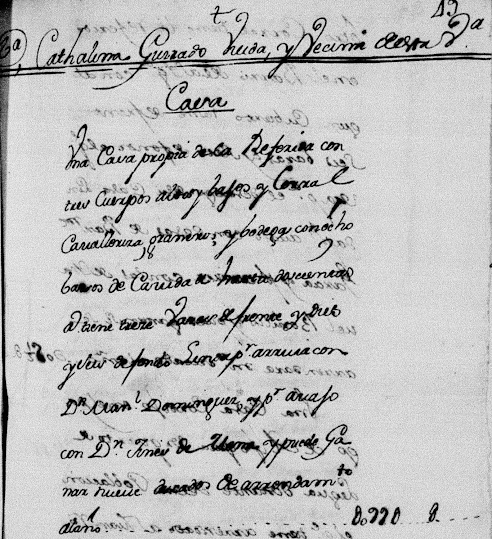 43
Cathalina Guzado Viuda, y Vecina desta Va
Casa
Una Casa propia de la Referida con
tres Cuerpos altos y bajos y Corral
Cavalleriza, graneros, y bodega con ocho
basos de Cavida a hasta doscientas
a tiene trece Varas de frente y diez
y seis de fondo Linda pr arriva con
Dn Manl Dominguez, y pr avajo
con Dn Ines de y puede Ga
nar nueve ducados de arrendamto
al año 8